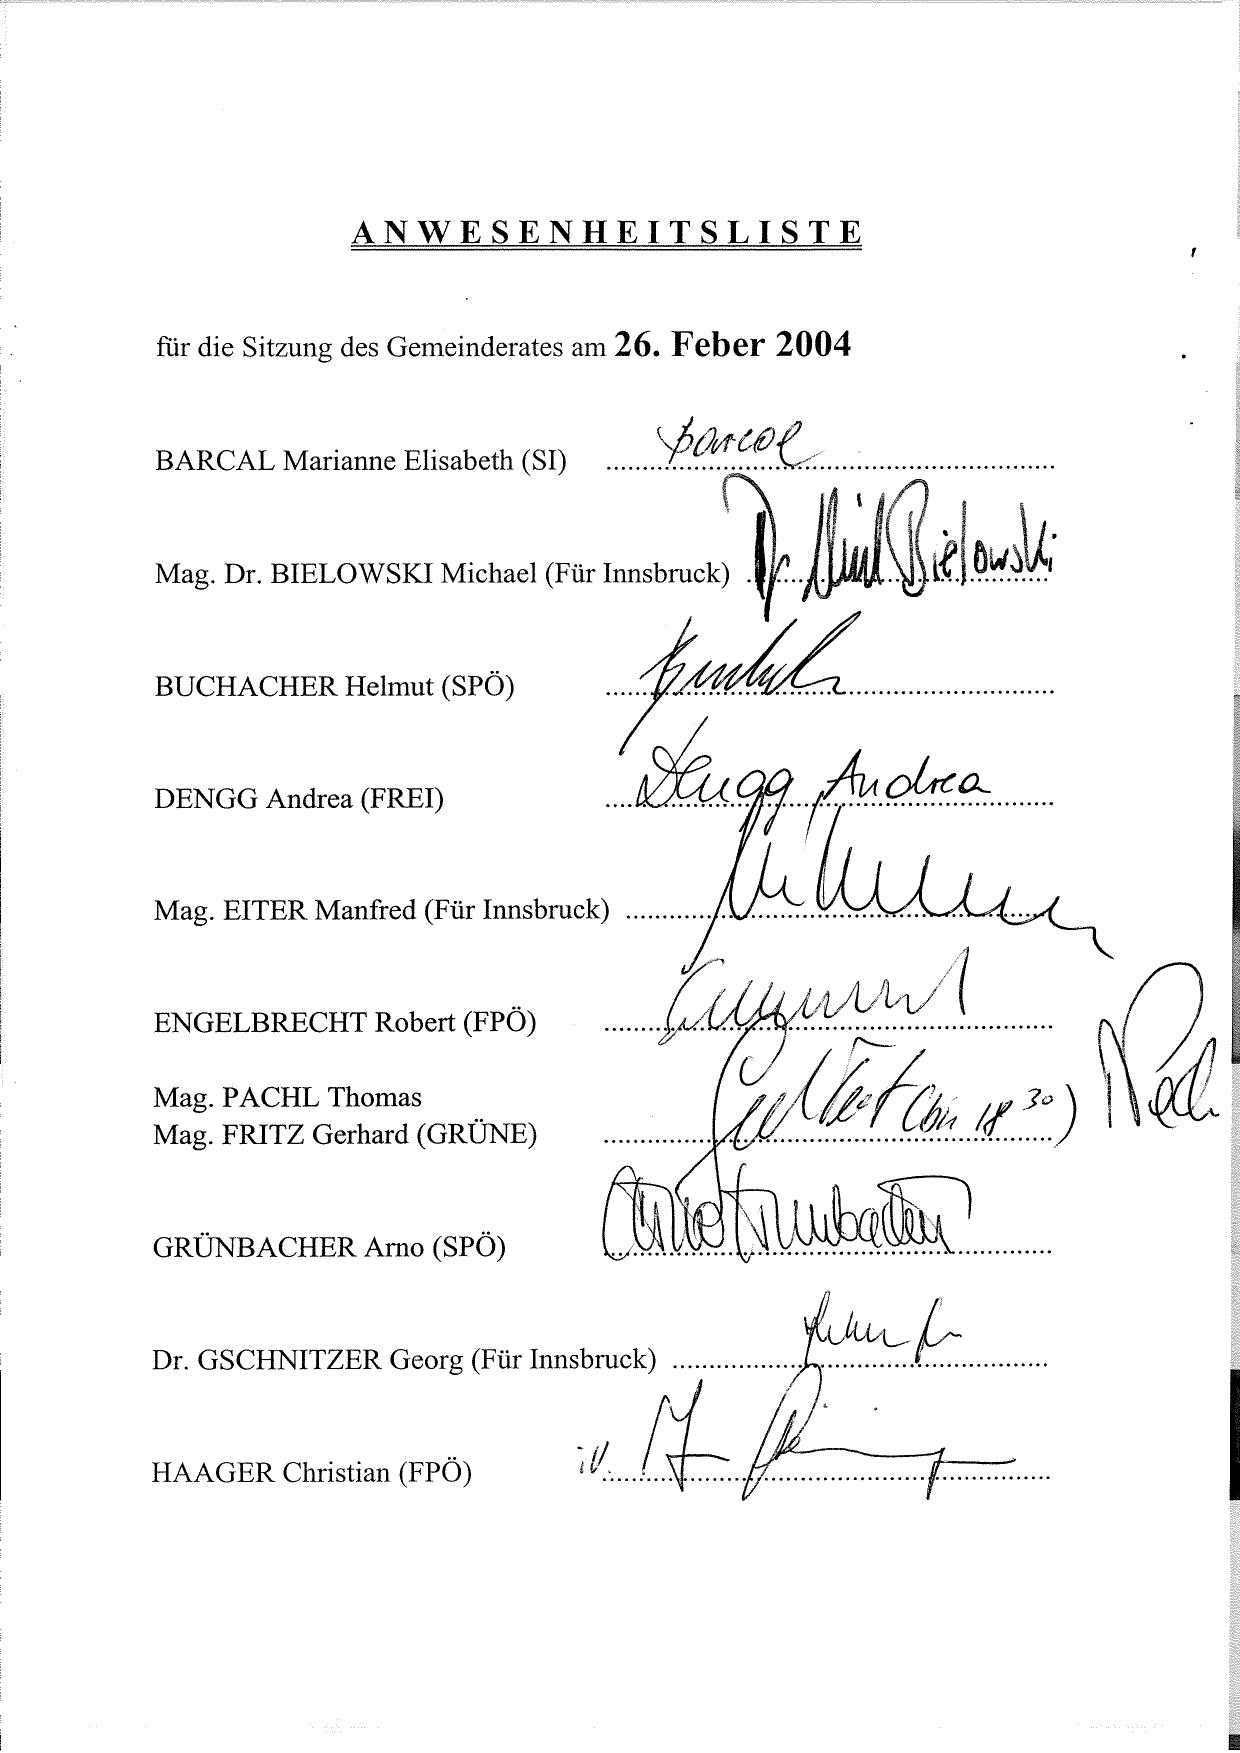 ANWESENHEITSLISTE
für die Sitzung des Gemeinderates am 26. Feber 2004
BARCAL Marianne Elisabeth (SI) Barcal
Mag. Dr. BIELOWSKI Michael (Für Innsbruck) Dr. Bielowski
BUCHACHER Helmut (SPÖ)
DENGG Andrea (FREI) Dengg Andrea
Mag. EITER Manfred (Für Innsbruck)
ENGELBRECHT Robert (FPÖ)
Mag. PACHL Thomas
Mag. FRITZ Gerhard (GRÜNE) (bis 18 30)
GRÜNBACHER Arno (SPÖ) Arno Grünbacher
Dr. GSCHNITZER Georg (Für Innsbruck)
HAAGER Christian (FPÖ) i.V.